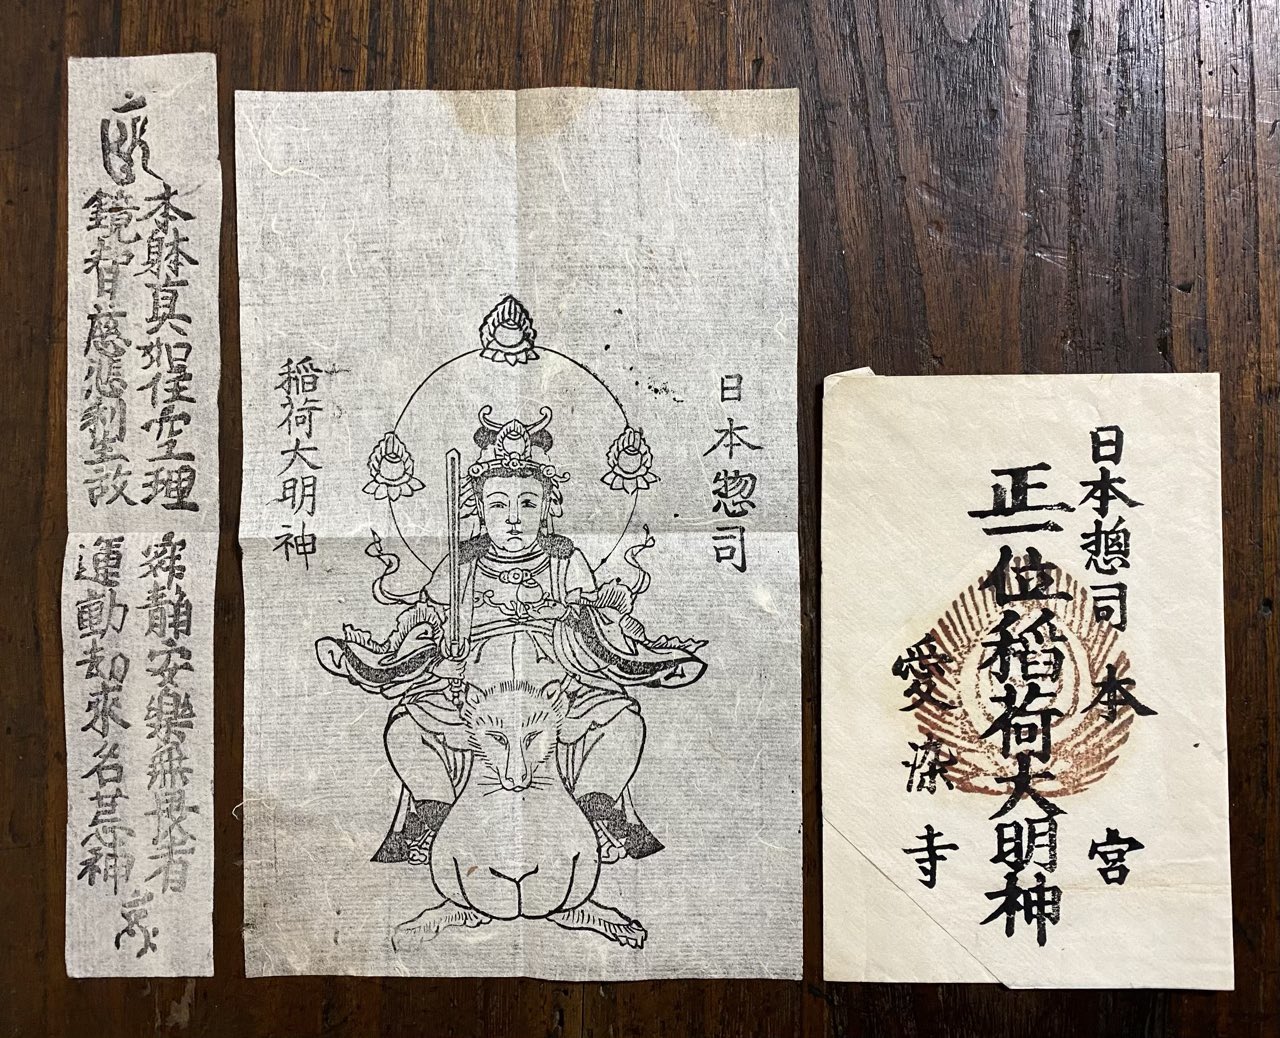 日本摠司　本宮
正一位稲荷大明神
愛染寺
日本惣司
稲荷大明神
本躰真如住空理　寂静安樂無者
鏡智慈悲利生故　運動却來名神